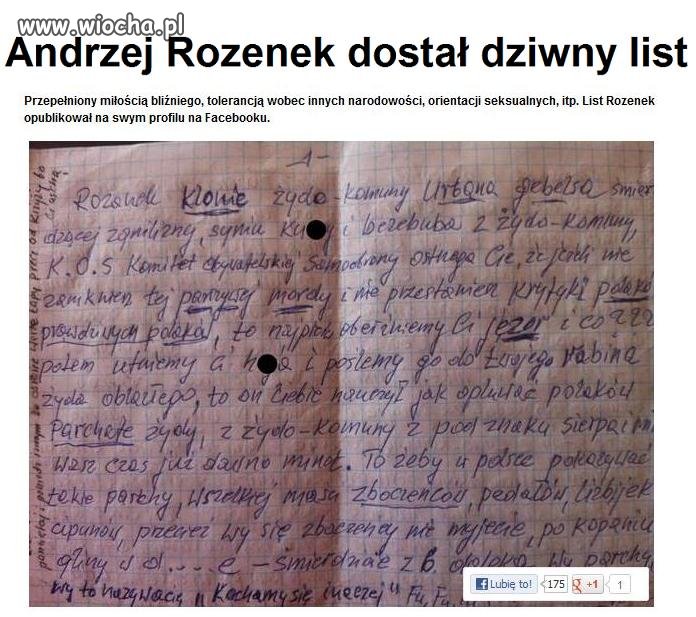 www.wiocha.pl
Andrzej Rozenek dostał dziwny list
Przepełniony miłością bliźniego, tolerancją wobec innych narodowości, orientacji seksualnych, itp. List Rozenek
opublikował na swym profilu na Facebooku.
-1-
Rozanek Klonie żydo-komuny Urbana gebelsa śmier
dzącej zgnilizny, synu Ku y i belzebuba z żydo-komuny,
K.O.S Komitet Obywatelskiej Samoobrony ostrzega Cię, że jeżeli nie
zamkniesz tej parszywej mordy i nie przestaniesz krytyki polaków
prawdziwych polaków, to najpierw oberżniemy Ci jęzor i co ???
potem utniemy Ci h a i poślemy go do twojego rabina
żyda oblatego, to on Ciebie nauczył jak opluwać polaków
Parchate żydy, z żydo-komuny z pod znaku sierpa i m
Wasz czas już dawno minoł. To żeby w polsce pokazywać
takie parchy, wszelkiej maści zboczeńców, pedałów, lizbijek
przecież wy się zboczeńcy nie myjecie, po kopaniu
gliny w d....e - śmierdzicie z
wy to nazywacie "Kochamy się inaczej" Fu, Fu,
Lubię to! 175 +1 1